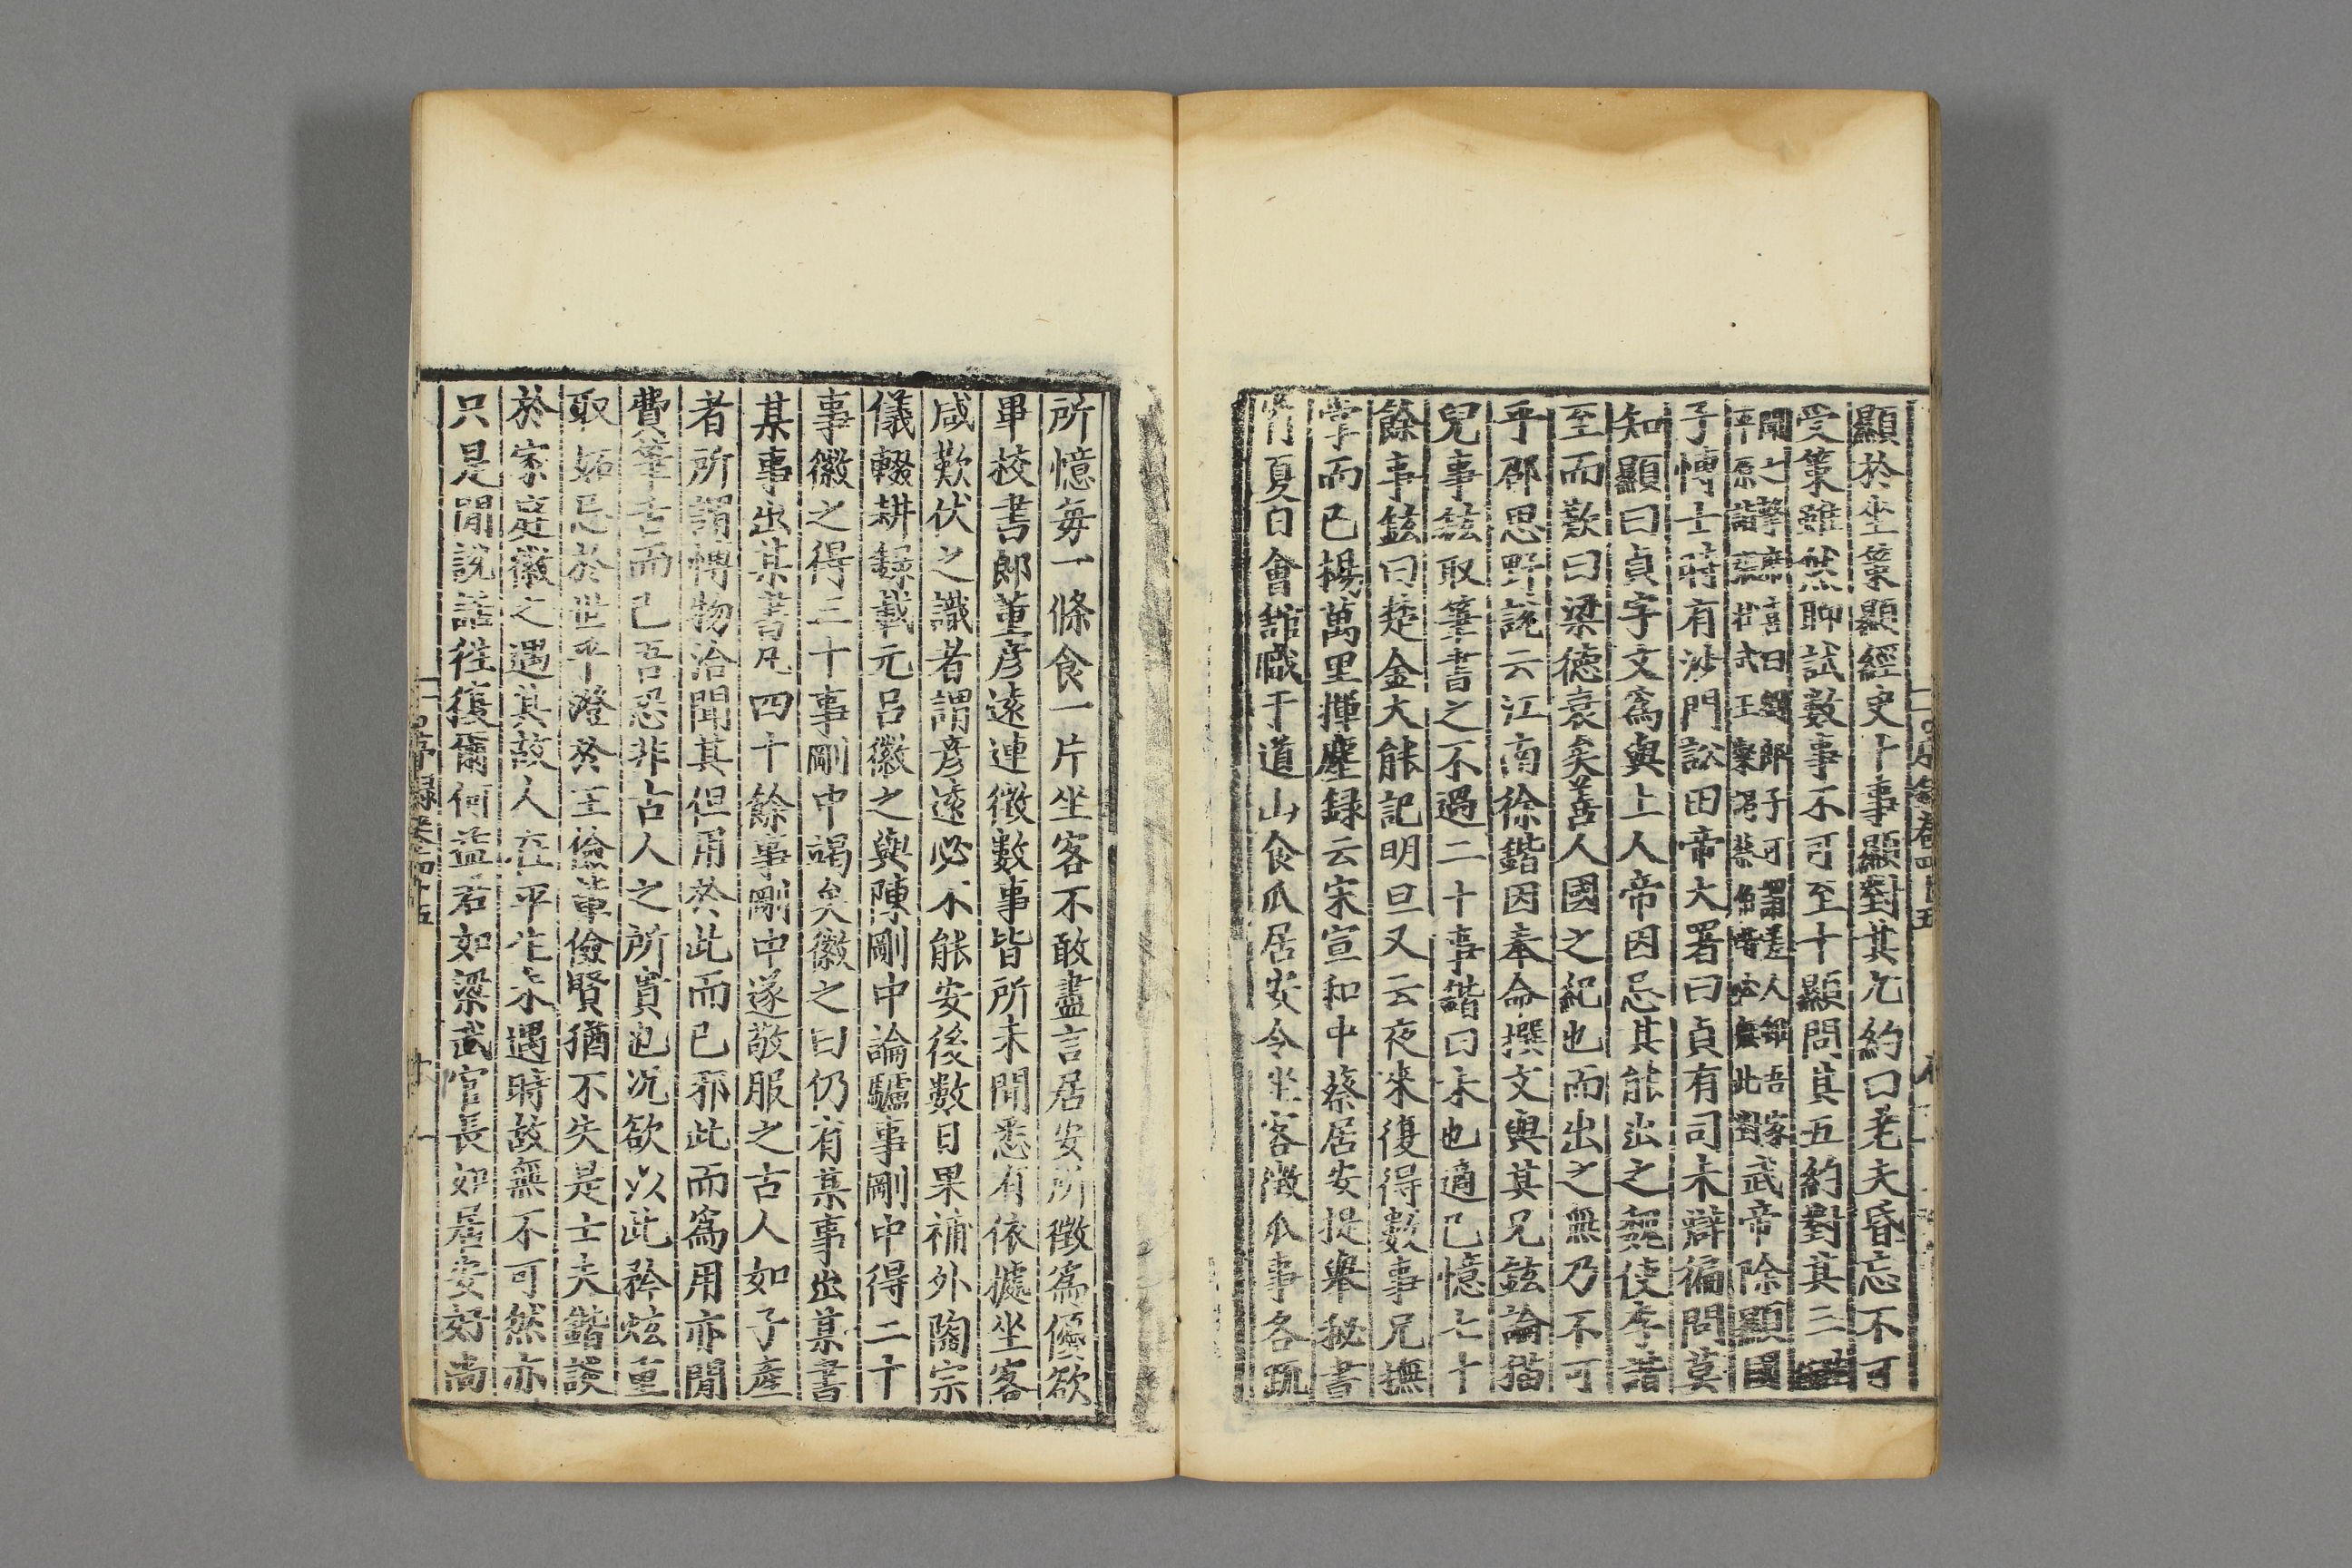 顯於坐策顯經史十事顯對其九約曰老夫昏忘不可
受策雖然聊試數事不可至十顯問其五約對其二陸倕
聞之擊席喜曰劉郎子可謂差人雖吾家
平原詣張壯武王粲謁蔡伯喈必無此對武帝除顯國
子博士時有沙門訟田帝大署曰貞有司未辯徧問莫
知顯曰貞字文爲與上人帝因忌其能出之魏使李諧
至而歎曰梁德衰矣善人國之紀也而出之無乃不可
乎鄭思野說云江南徐鍇因奉命撰文與其兄鉉論猫
兒事鉉取筆書之不過二十事鍇曰未也適已憶七十
餘事鉉曰楚金大能記明旦又云夜來復得數事兄撫
掌而已楊萬里揮麈録云宋宣和中蔡居安提舉秘書
省夏日會館職于道山食瓜居安令坐客徵瓜事各疏
所憶每一條食一片坐客不敢盡言居安所徵爲優欲
畢校書郎董彦遠連徵數事皆所未聞悉有依據坐客
咸歎伏之識者謂彦遠必不能安後數日果補外陶宗
儀輟耕録載元呂徽之與陳剛中論驢事剛中得二十
事徽之得三十事剛中謁矣徽之曰仍有某事出某書
某事出某書凡四十餘事剛中遂敬服之古人如子産
者所謂博物洽聞其但用於此而已邪此而爲用亦閒
費筆舌而已吾恐非古人之所貴也况欲以此矜炫重
取妬忌於世乎澄於王儉輩儉賢猶不失是士夫鍇談
於家庭徽之遇其故人在平生未遇時故無不可然亦
只是閒說話往復爾何益若如梁武官長如居安好尚
録卷四十五